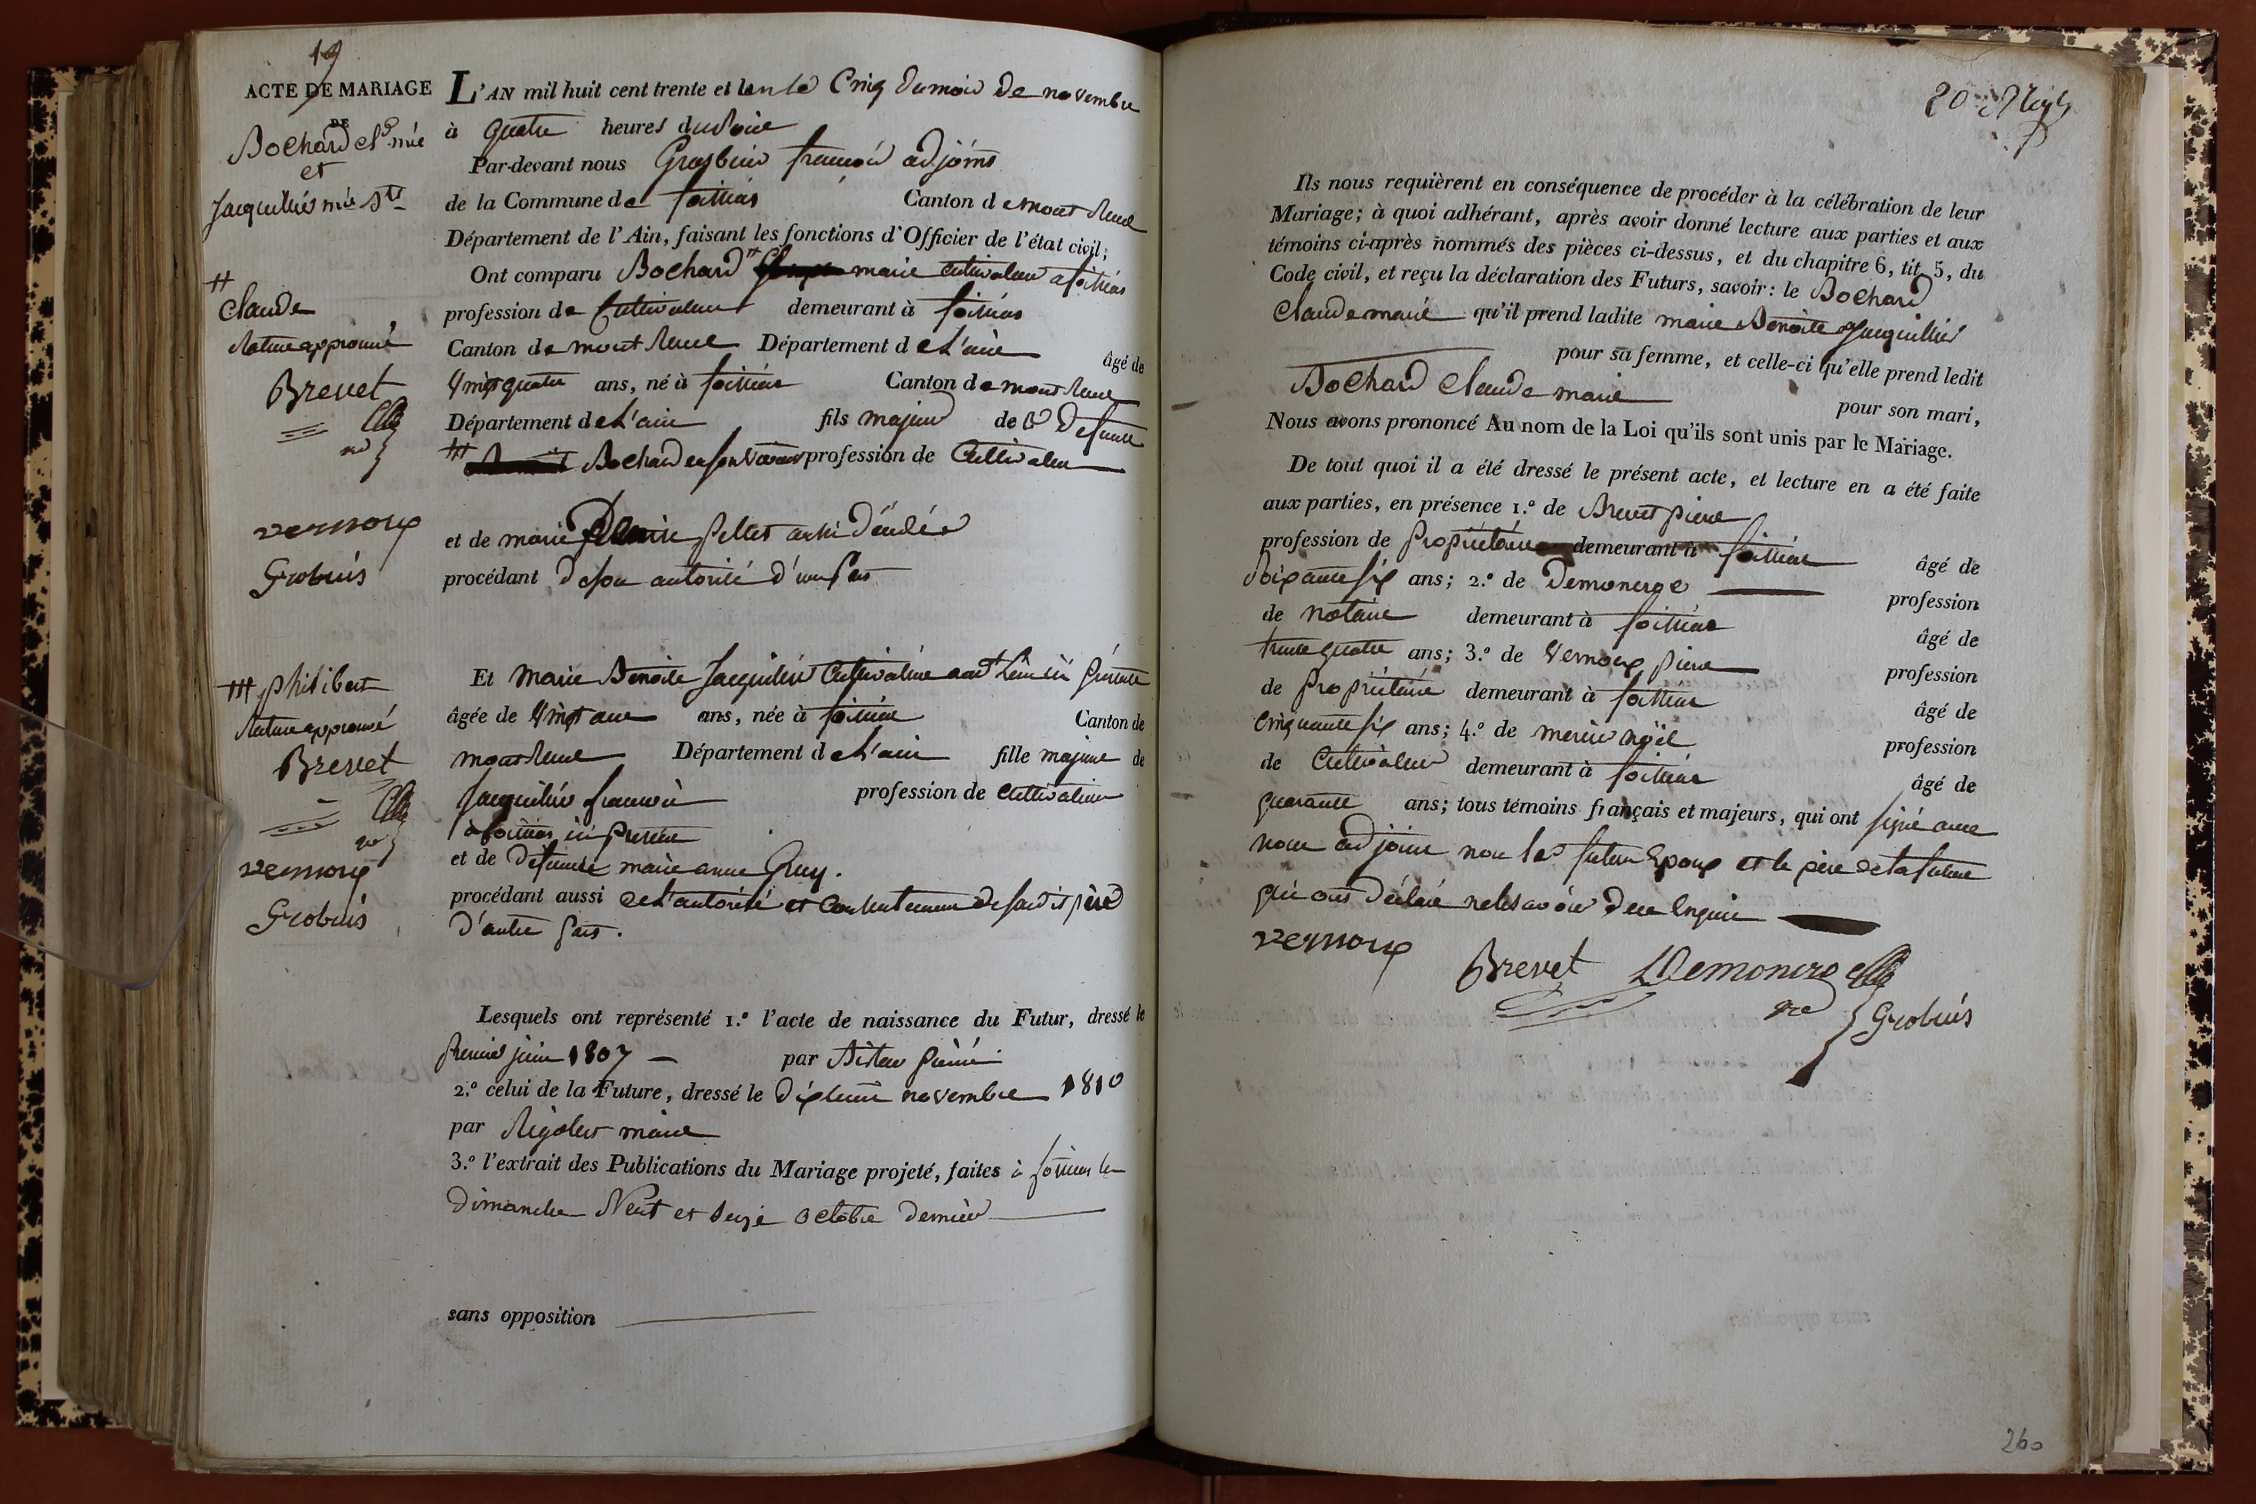 19
ACTE DE MARIAGE
DE
Bochard Cl.de m.ie
et
Jacquillies m.ie B.te
L'AN mil huit cent trente et un le Cinq du mois de novembre
à quatre heures du soir
Par-devant nous Grosbuis françois adjoint
de la Commune de foissias Canton de mont Revel
Département de l'Ain, faisant les fonctions d'Officier de l'état civil;
Ont comparu Bochard # marie cultivateur a foissias
profession de Cultivateur demeurant à foissias
Canton de mont Revel Département de L'ain âgé de
vingt quatre ans, né à foissias Canton de mont Revel
Département de L'ain fils majeur de defunt
### Bochard en son vivant profession de Cultivateur
et de marie pellet aussi décédée
procédant de son autorité d'une part
#
Claude
Rature approuvé
Brevet
vernoux
Grobuis
Et marie Benoite Jacquillies Cultivatrice
âgée de vingt ans, née à foissias Canton de
mont Revel Département de L'ain fille majeure de
Jacquillies francois profession de cultivateur
à foissias ici present
et de defunte marie anne Guy.
procédant aussi de L'autorité et Consentement de sondit père
d'autre part.
### philibert
Rature approuvé
Brevet
vernoux
Grobuis
Lesquels ont représenté 1.° l'acte de naissance du Futur, dressé le
premier juin 1807 par
2.° celui de la Future, dressé le dixieme novembre 1810
par Rigolet maire
3.° l'extrait des Publications du Mariage projeté, faites à foissias les
Dimanche Neuf et seize octobre dernier
sans opposition
Ils nous requièrent en conséquence de procéder à la célébration de leur
Mariage; à quoi adhérant, après avoir donné lecture aux parties et aux
témoins ci-après nommés des pièces ci-dessus, et du chapitre 6, tit. 5, du
Code civil, et reçu la déclaration des Futurs, savoir: le Bochard
Claude marie qu'il prend ladite marie Benoite Jacquillies
pour sa femme, et celle-ci qu'elle prend ledit
Bochard Claude marie pour son mari,
Nous avons prononcé Au nom de la Loi qu'ils sont unis par le Mariage.
De tout quoi il a été dressé le présent acte, et lecture en a été faite
aux parties, en présence 1.° de Brevet pierre
profession de Propriétaire demeurant à foissias âgé de
soixante six ans; 2.° de Demoncroz profession
de notaire demeurant à foissias âgé de
trente quatre ans; 3.° de Vernoux pierre profession
de propriétaire demeurant à foissias âgé de
cinquante six ans; 4.° de mercier noël profession
de Cultivateur demeurant à foissias âgé de
quarante ans; tous témoins français et majeurs, qui ont signé avec
nous adjoint non les futurs Epoux et le père de la future
qui ont déclaré ne le savoir de ce enquis
vernoux
Brevet Demoncroz
Grobuis
260